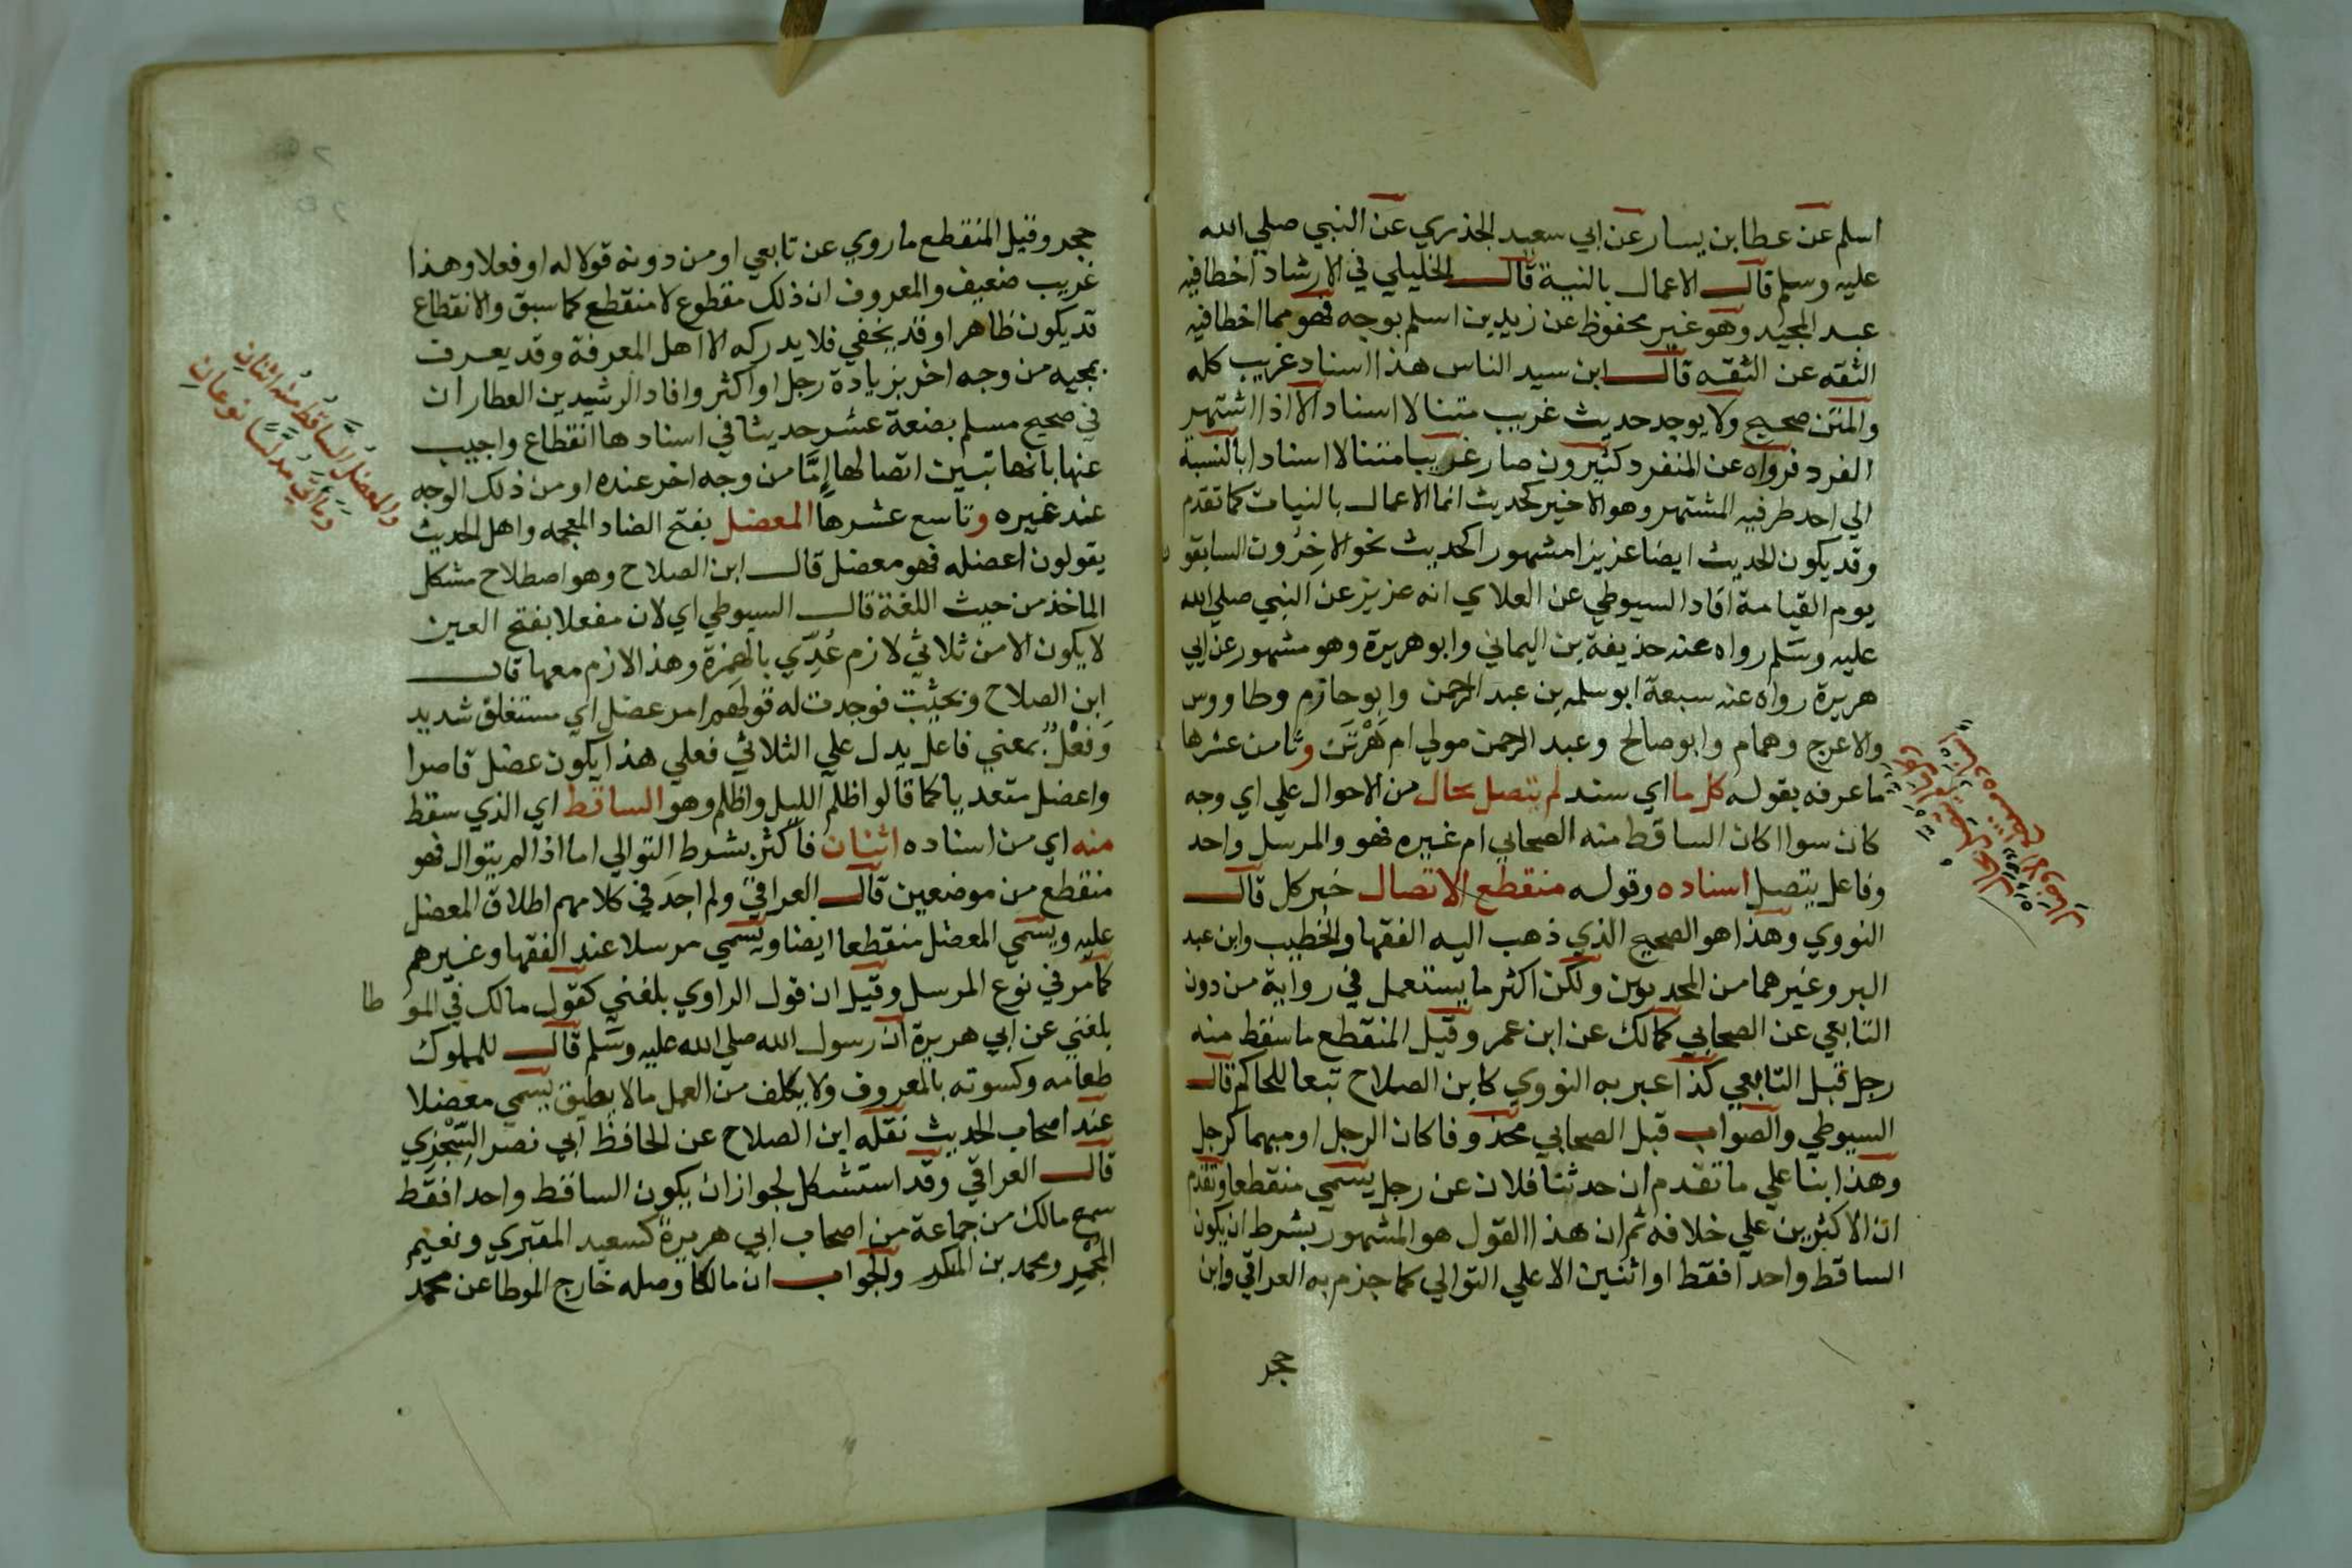 اسلم عن عطا بن يسار عن ابي سعيد الخذري عن النبي صلي الله
عليه وسلم قال الاعمال بالنية قال الخليلي في الارشاد اخطا فيه
عبد المجيد وهو غير محفوظ عن زيد بن اسلم بوجه فهو مما اخطا فيه
الثقه عن الثقه قال ابن سيد الناس هذا اسناد غريب كله
والمتن صحيح ولا يوجد حديث غريب متنا لا اسنادا الا اذا اشتهر
الفرد فرواه عن المنفرد كثيرون صار غريبا متنا لا اسنادا بالنسبة
الي احد طرفيه المشتهر وهو الاخير كحديث انما الاعمال بالنيات كما تقدم
وقد يكون الحديث ايضا عزيزا مشهورا كحديث نحو الاخرون السابقون
يوم القيامة افاد السيوطي عن العلاي انه عزيز عن النبي صلي الله
عليه وسلم رواه عنه حذيفة بن اليماني وابو هريرة وهو مشهور عن ابي
هريرة رواه عنه سبعة ابو سلمه بن عبد الرحمن وابو حازم وطاووس
والاعرج وهمام وابو صالح وعبد الرحمن مولي ام هَرْثَن وثامن عشرها
ما عرفه بقوله كل ما اي سند لم يتصل بحال من الاحوال علي اي وجه
كان سوا اكان الساقط منه الصحابي ام غيره فهو والمرسل واحد
وفاعل يتصل اسناده وقوله منقطع الاتصال خبر كل قال
النووي وهذا هو الصحيح الذي ذهب اليه الفقها والخطيب وابن عبد
البر وغيرهما من المحديين ولكن اكثر ما يستعمل في رواية من دون
التابعي عن الصحابي كمالك عن ابن عمر وقيل المنقطع ما سقط منه
رجل قبل التابعي كذا عبر به النووي كابن الصلاح تبعا للحاكم قال
السيوطي والصواب قبل الصحابي محذوفا كان الرجل او مبهما كرجل
وهذا بنا علي ما تقدم ان حدثنا فلان عن رجل يسمي منقطعا وتقدم
ان الاكثرين علي خلافه ثم ان هذا القول هو المشهور بشرط ان يكون
الساقط واحدا فقط او اثنين لا علي التوالي كما جزم به العراقي وابن
حجر
حجر وقيل المنقطع ما روي عن تابعي او من دونه قولا له او فعلا وهذا
غريب ضعيف والمعروف ان ذلك مقطوع لا منقطع كما سبق والانقطاع
قد يكون ظاهرا وقد يخفي فلا يدركه الا اهل المعرفة وقد يعرف
بمجيه من وجه اخر بزيادة رجل او اكثر وافاد الرشيد بن العطار ان
في صحيح مسلم بضعة عشر حديثا في اسنادها انقطاع واجيب
عنها بانها تبين اتصالها إمّا من وجه اخر عنده او من ذلك الوجه
عند غيره وتاسع عشرها المعضل بفتح الضاد المعجمه واهل الحديث
يقولون اعضله فهو معضل قال ابن الصلاح وهو اصطلاح مشكل
الماخذ من حيث اللغة قال السيوطي اي لان مفعلا بفتح العين
لا يكون الا من ثلاثي لازم عُدّي بالهمزة وهذا لازم معها قال
ابن الصلاح وبحثت فوجدت له قولهم امر عضل اي مستغلق شديد
وَفَعْلٌ بمعني فاعل يدل علي الثلاثي فعلي هذا يكون عضل قاصرا
واعضل متعديا كما قالوا ظلم الليل واظلم وهو الساقط اي الذي سقط
منه اي من اسناده اثنان فاكثر بشرط التوالي اما اذا لم يتوال فهو
منقطع من موضعين قال العراقي ولم اجد في كلامهم اطلاق المعضل
عليه ويسمي المعضل منقطعا ايضا ويسمي مرسلا عند الفقها وغيرهم
كما مر في نوع المرسل وقيل ان قول الراوي بلغني كقول مالك في المو طا
بلغني عن ابي هريرة ان رسول الله صلي الله عليه وسلم قال للمملوك
طعامه وكسوته بالمعروف ولا يكلف من العمل ما لا يطيق يسمي معضلا
عند اصحاب الحديث نقله ابن الصلاح عن الحافظ ابي نصر السّجْزِي
قال العراقي وقد استشكل لجواز ان يكون الساقط واحدا فقط
سمع مالك من جماعة من اصحاب ابي هريرة كسعيد المقبري ونعيم
المجمر ومحمد بن المنكدر والجواب ان مالكا وصله خارج الموطا عن محمد
والمعضل الساقط منه اثنان
وما اتي مدلسا نوعان